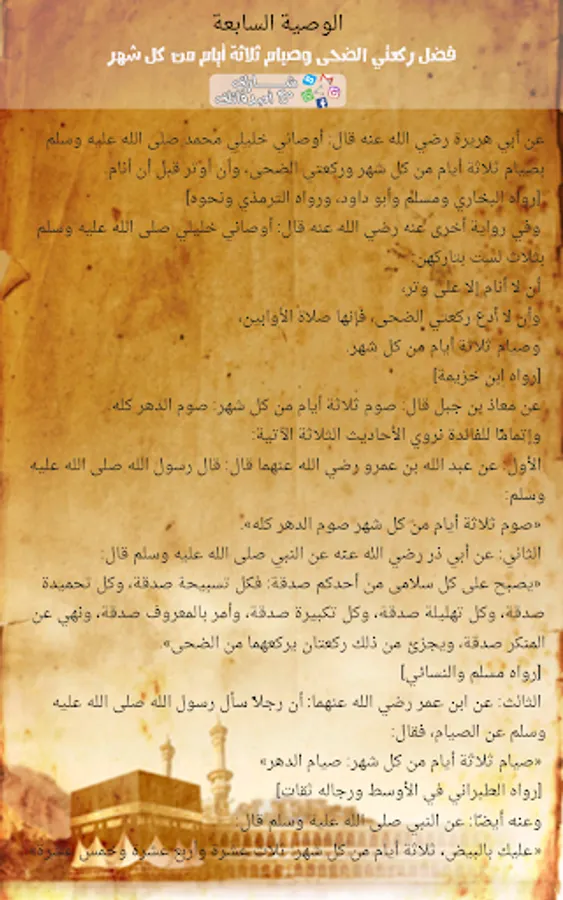 الوصية السابعة
فضل ركعتي الضحى وصيام ثلاثة أيام من كل شهر
شارك
مع أصدقائك
عن أبي هريرة رضي الله عنه قال: أوصاني خليلي محمد صلى الله عليه وسلم
بصيام ثلاثة أيام من كل شهر وركعتي الضحى، وأن أوتر قبل أن أنام.
[رواه البخاري ومسلم وأبو داود، ورواه الترمذي ونحوه]
وفي رواية أخرى عنه رضي الله عنه قال: أوصاني خليلي صلى الله عليه وسلم
بثلاث لست بتاركهن:
أن لا أنام إلا على وتر،
وأن لا أدع ركعتي الضحى، فإنها صلاة الأوابين،
وصيام ثلاثة أيام من كل شهر.
[رواه ابن خزيمة]
عن معاذ بن جبل قال: صوم ثلاثة أيام من كل شهر: صوم الدهر كله.
وإتمامًا للفائدة نروي الأحاديث الثلاثة الآتية:
الأول: عن عبد الله بن عمرو رضي الله عنهما قال: قال رسول الله صلى الله عليه
وسلم:
«صوم ثلاثة أيام من كل شهر صوم الدهر كله».
الثاني: عن أبي ذر رضي الله عنه عن النبي صلى الله عليه وسلم قال:
«يصبح على كل سلامى من أحدكم صدقة: فكل تسبيحة صدقة، وكل تحميدة
صدقة، وكل تهليلة صدقة، وكل تكبيرة صدقة، وأمر بالمعروف صدقة، ونهي عن
المنكر صدقة، ويجزئ من ذلك ركعتان يركعهما من الضحى»
[رواه مسلم والنسائي]
الثالث: عن ابن عمر رضي الله عنهما: أن رجلاً سأل رسول الله صلى الله عليه
وسلم عن الصيام، فقال:
«صيام ثلاثة أيام من كل شهر: صيام الدهر»
[رواه الطبراني في الأوسط ورجاله ثقات]
وعنه أيضًا: عن النبي صلى الله عليه وسلم قال:
«عليك بالبيض، ثلاثة أيام من كل شهر: ثلاث عشرة وأربع عشرة وخمس عشرة»